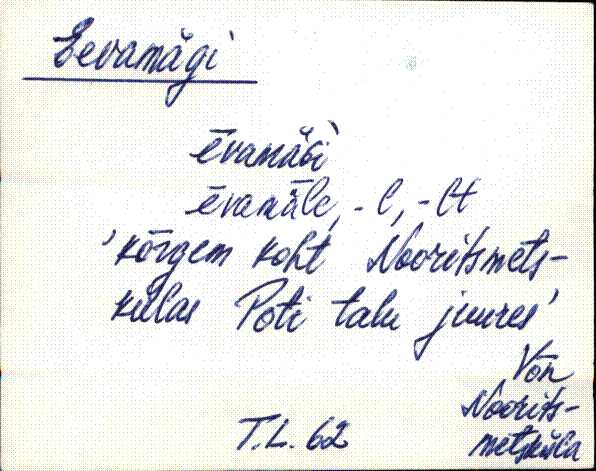 Eevamägi
ēvamäGi
ēvamäle, -l, -lt
'kõrgem koht Nooritsmets-
külas Poti talu juures'
Võn
Noorits-
metsküla
T.L. 62